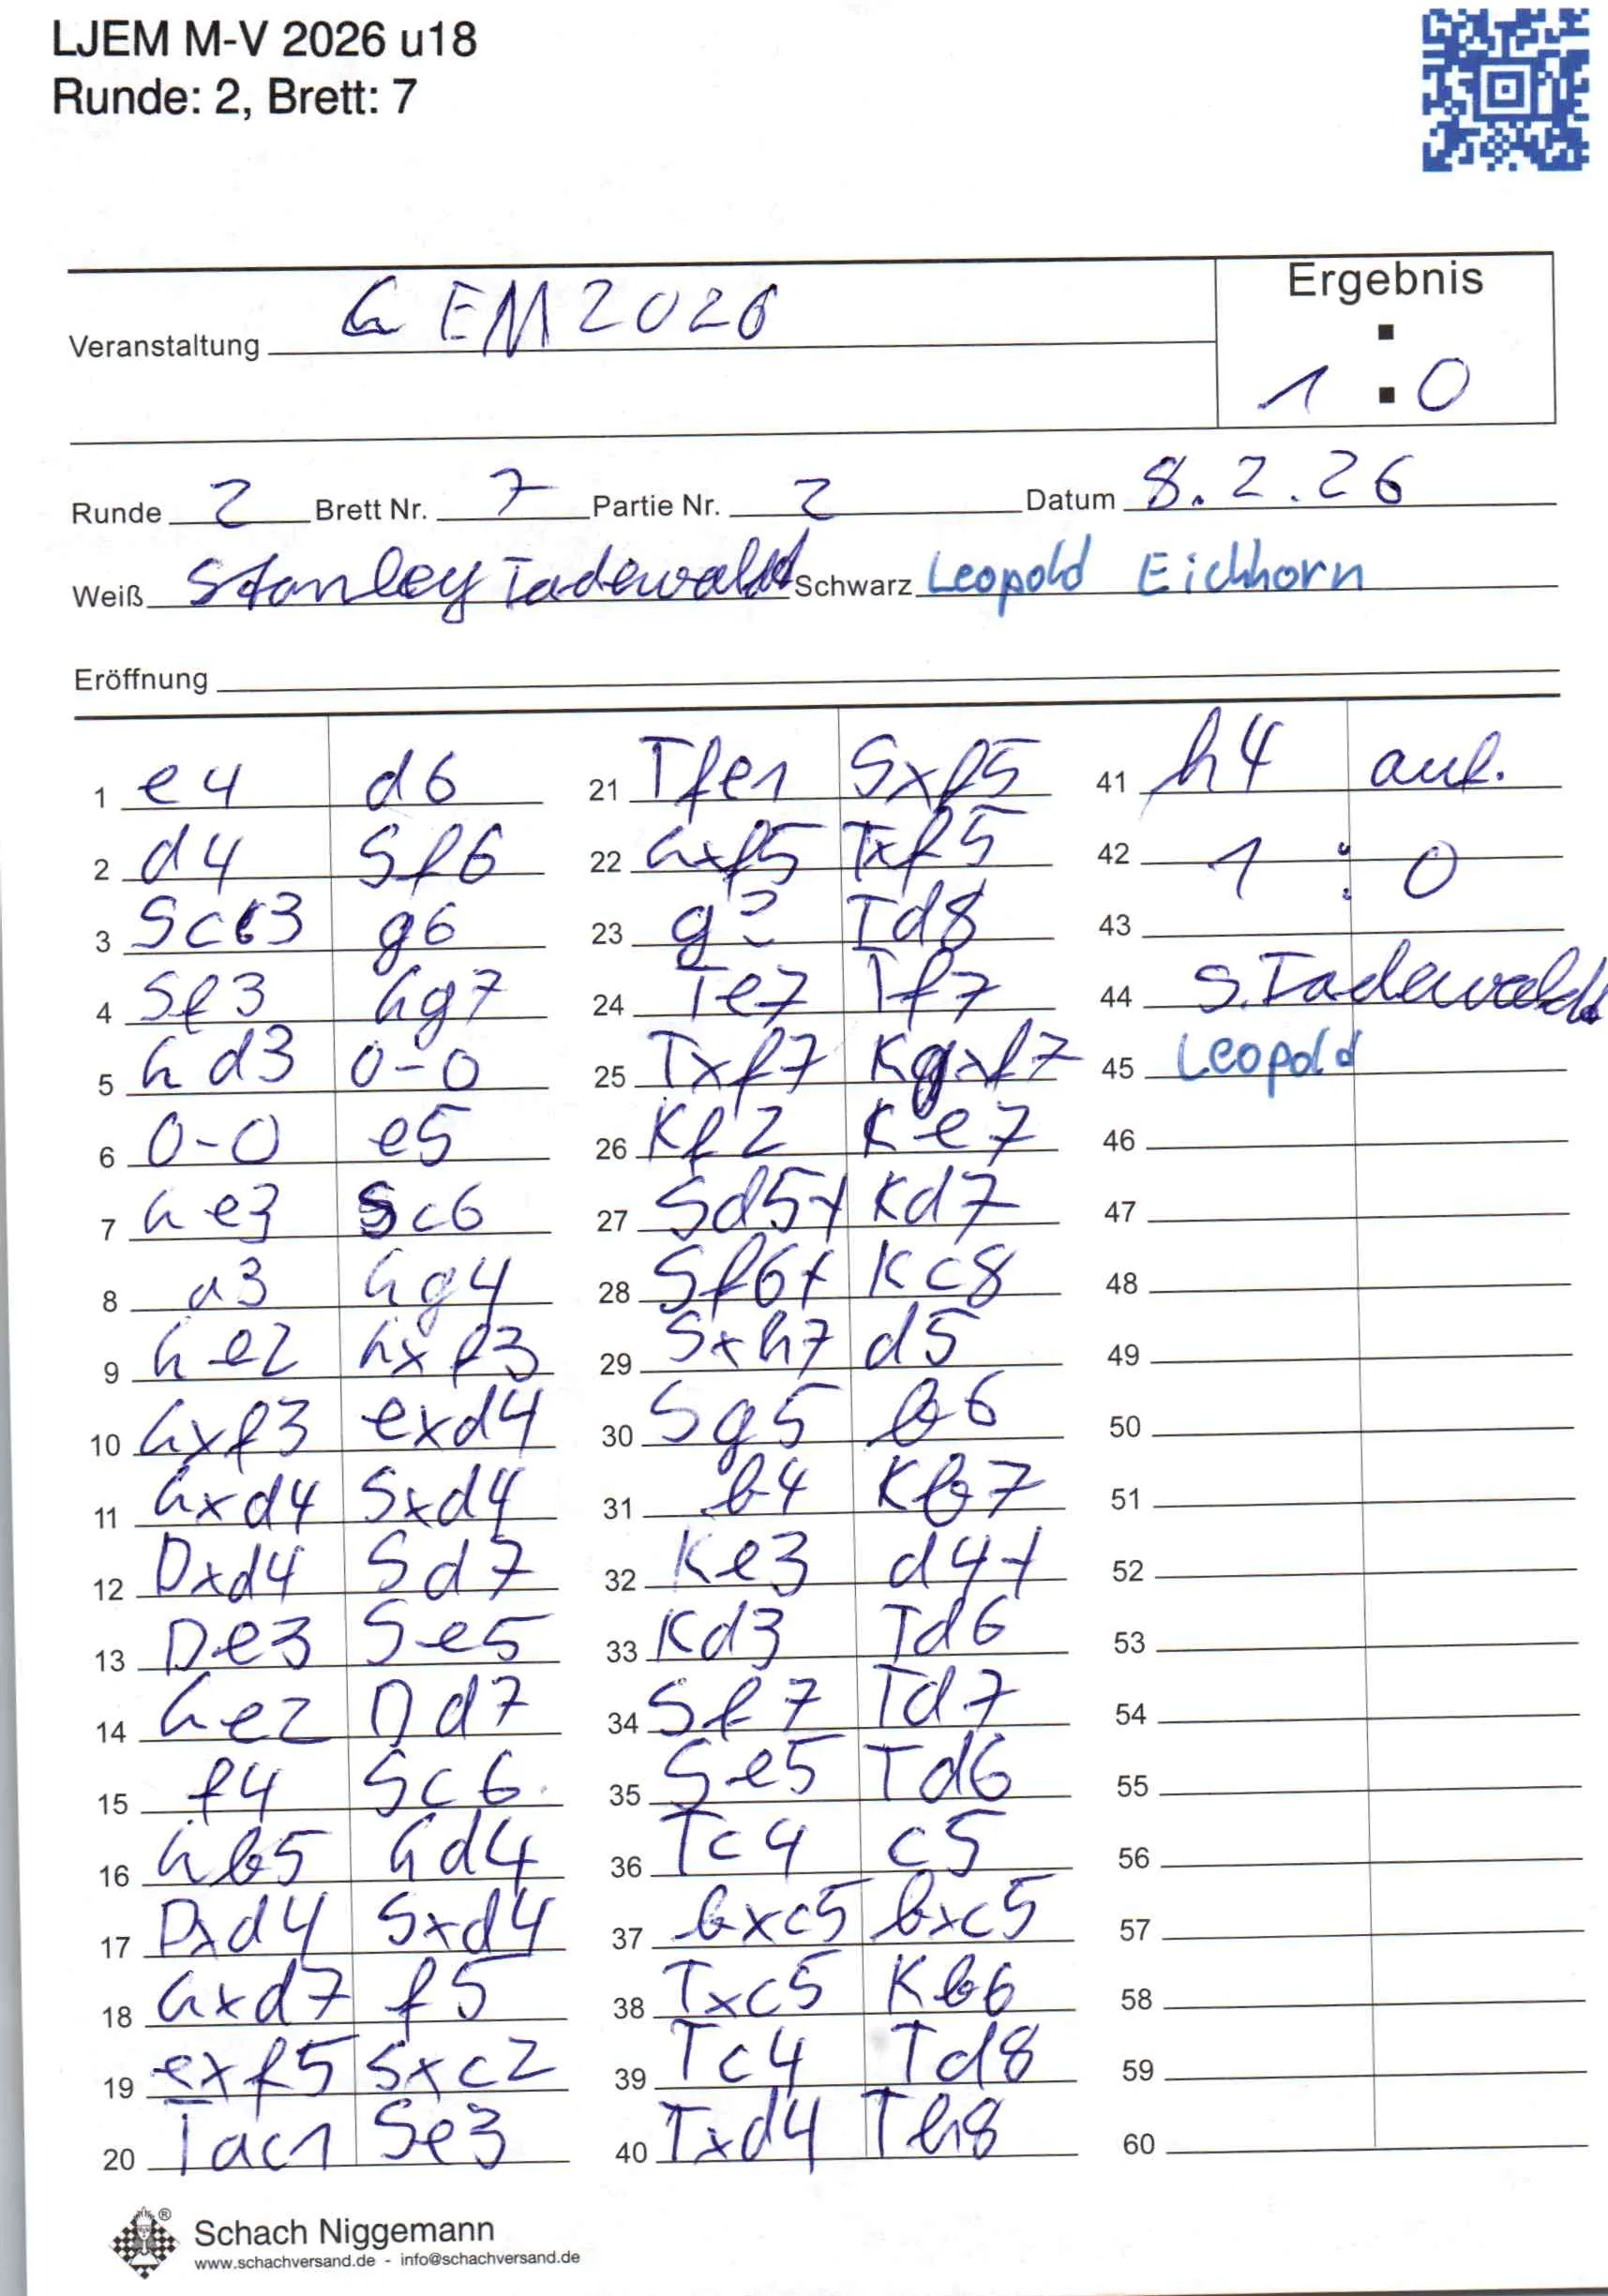 LJEM M-V 2026 u18
Runde: 2, Brett: 7
Ergebnis
:
Veranstaltung LEM 2026
1 : 0
Runde 2 Brett Nr. 7 Partie Nr. 2 Datum 8.2.26
Weiß Stanley Tadewaldt Schwarz Leopold Eichhorn
Eröffnung
1 e4 d6
2 d4 Sf6
3 Sc3 g6
4 Sf3 Lg7
5 Ld3 0-0
6 0-0 e5
7 Le3 Sc6
8 a3 Lg4
9 Le2 Lxf3
10 Lxf3 exd4
11 Lxd4 Sxd4
12 Dxd4 Sd7
13 De3 Se5
14 Le2 Dd7
15 f4 Sc6
16 Lb5 Ld4
17 Dxd4 Sxd4
18 Lxd7 f5
19 exf5 Sxc2
20 Tac1 Se3
21 Tfe1 Sxf5
22 Lxf5 Txf5
23 g3 Td8
24 Te7 Tf7
25 Txf7 Kxf7
26 Kf2 Ke7
27 Sd5+ Kd7
28 Sf6+ Kc8
29 Sxh7 d5
30 Sg5 b6
31 b4 Kb7
32 Ke3 d4+
33 Kd3 Td6
34 Sf7 Td7
35 Se5 Td6
36 Tc4 c5
37 bxc5 bxc5
38 Txc5 Kb6
39 Tc4 Td8
40 Txd4 Th8
41 h4 auf.
42 1 : 0
43
44 S.Tadewaldt
45 Leopold
46
47
48
49
50
51
52
53
54
55
56
57
58
59
60
Schach Niggemann
www.schachversand.de - info@schachversand.de